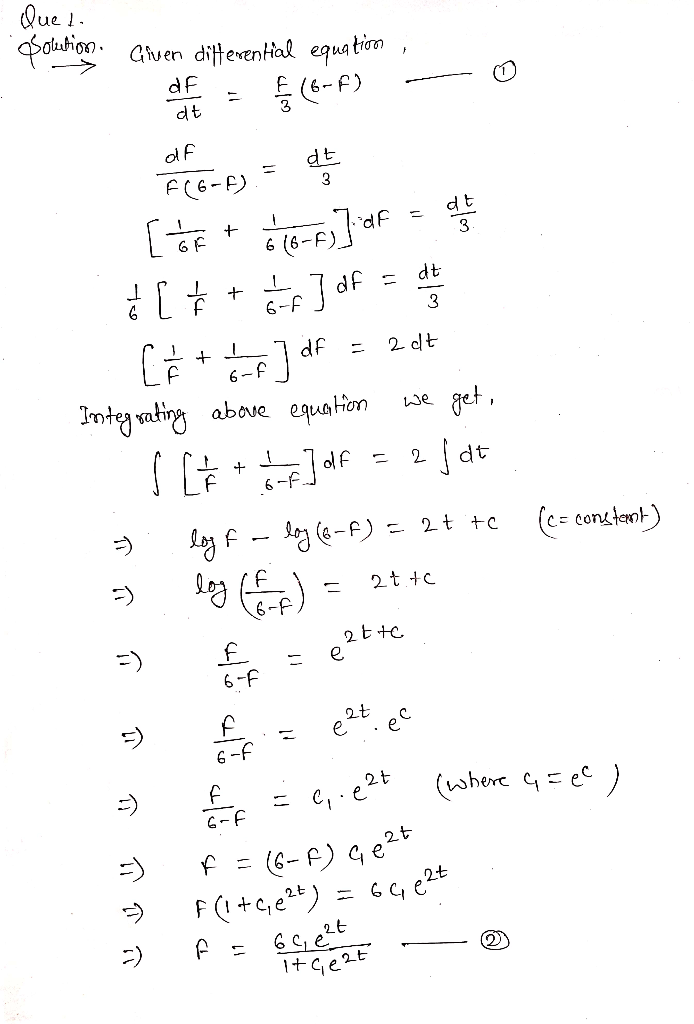 Que 1.
Solution. → Given differential equation,
dF/dt = F/3 (6-F) — ①
dF/F(6-F) = dt/3
[1/6F + 1/6(6-F)] dF = dt/3
1/6 [1/F + 1/6-F] dF = dt/3
[1/F + 1/6-F] dF = 2dt
Integrating above equation we get,
∫ [1/F + 1/6-F] dF = 2 ∫ dt
⇒ log F - log (6-F) = 2t + c (c = constant)
⇒ log (F/6-F) = 2t + c
⇒ F/6-F = e^2t+c
⇒ F/6-F = e^2t . e^c
⇒ F/6-F = c₁ . e^2t (where c₁ = e^c)
⇒ F = (6-F) c₁e^2t
⇒ F(1 + c₁e^2t) = 6c₁e^2t
⇒ F = 6c₁e^2t/1+c₁e^2t — ②